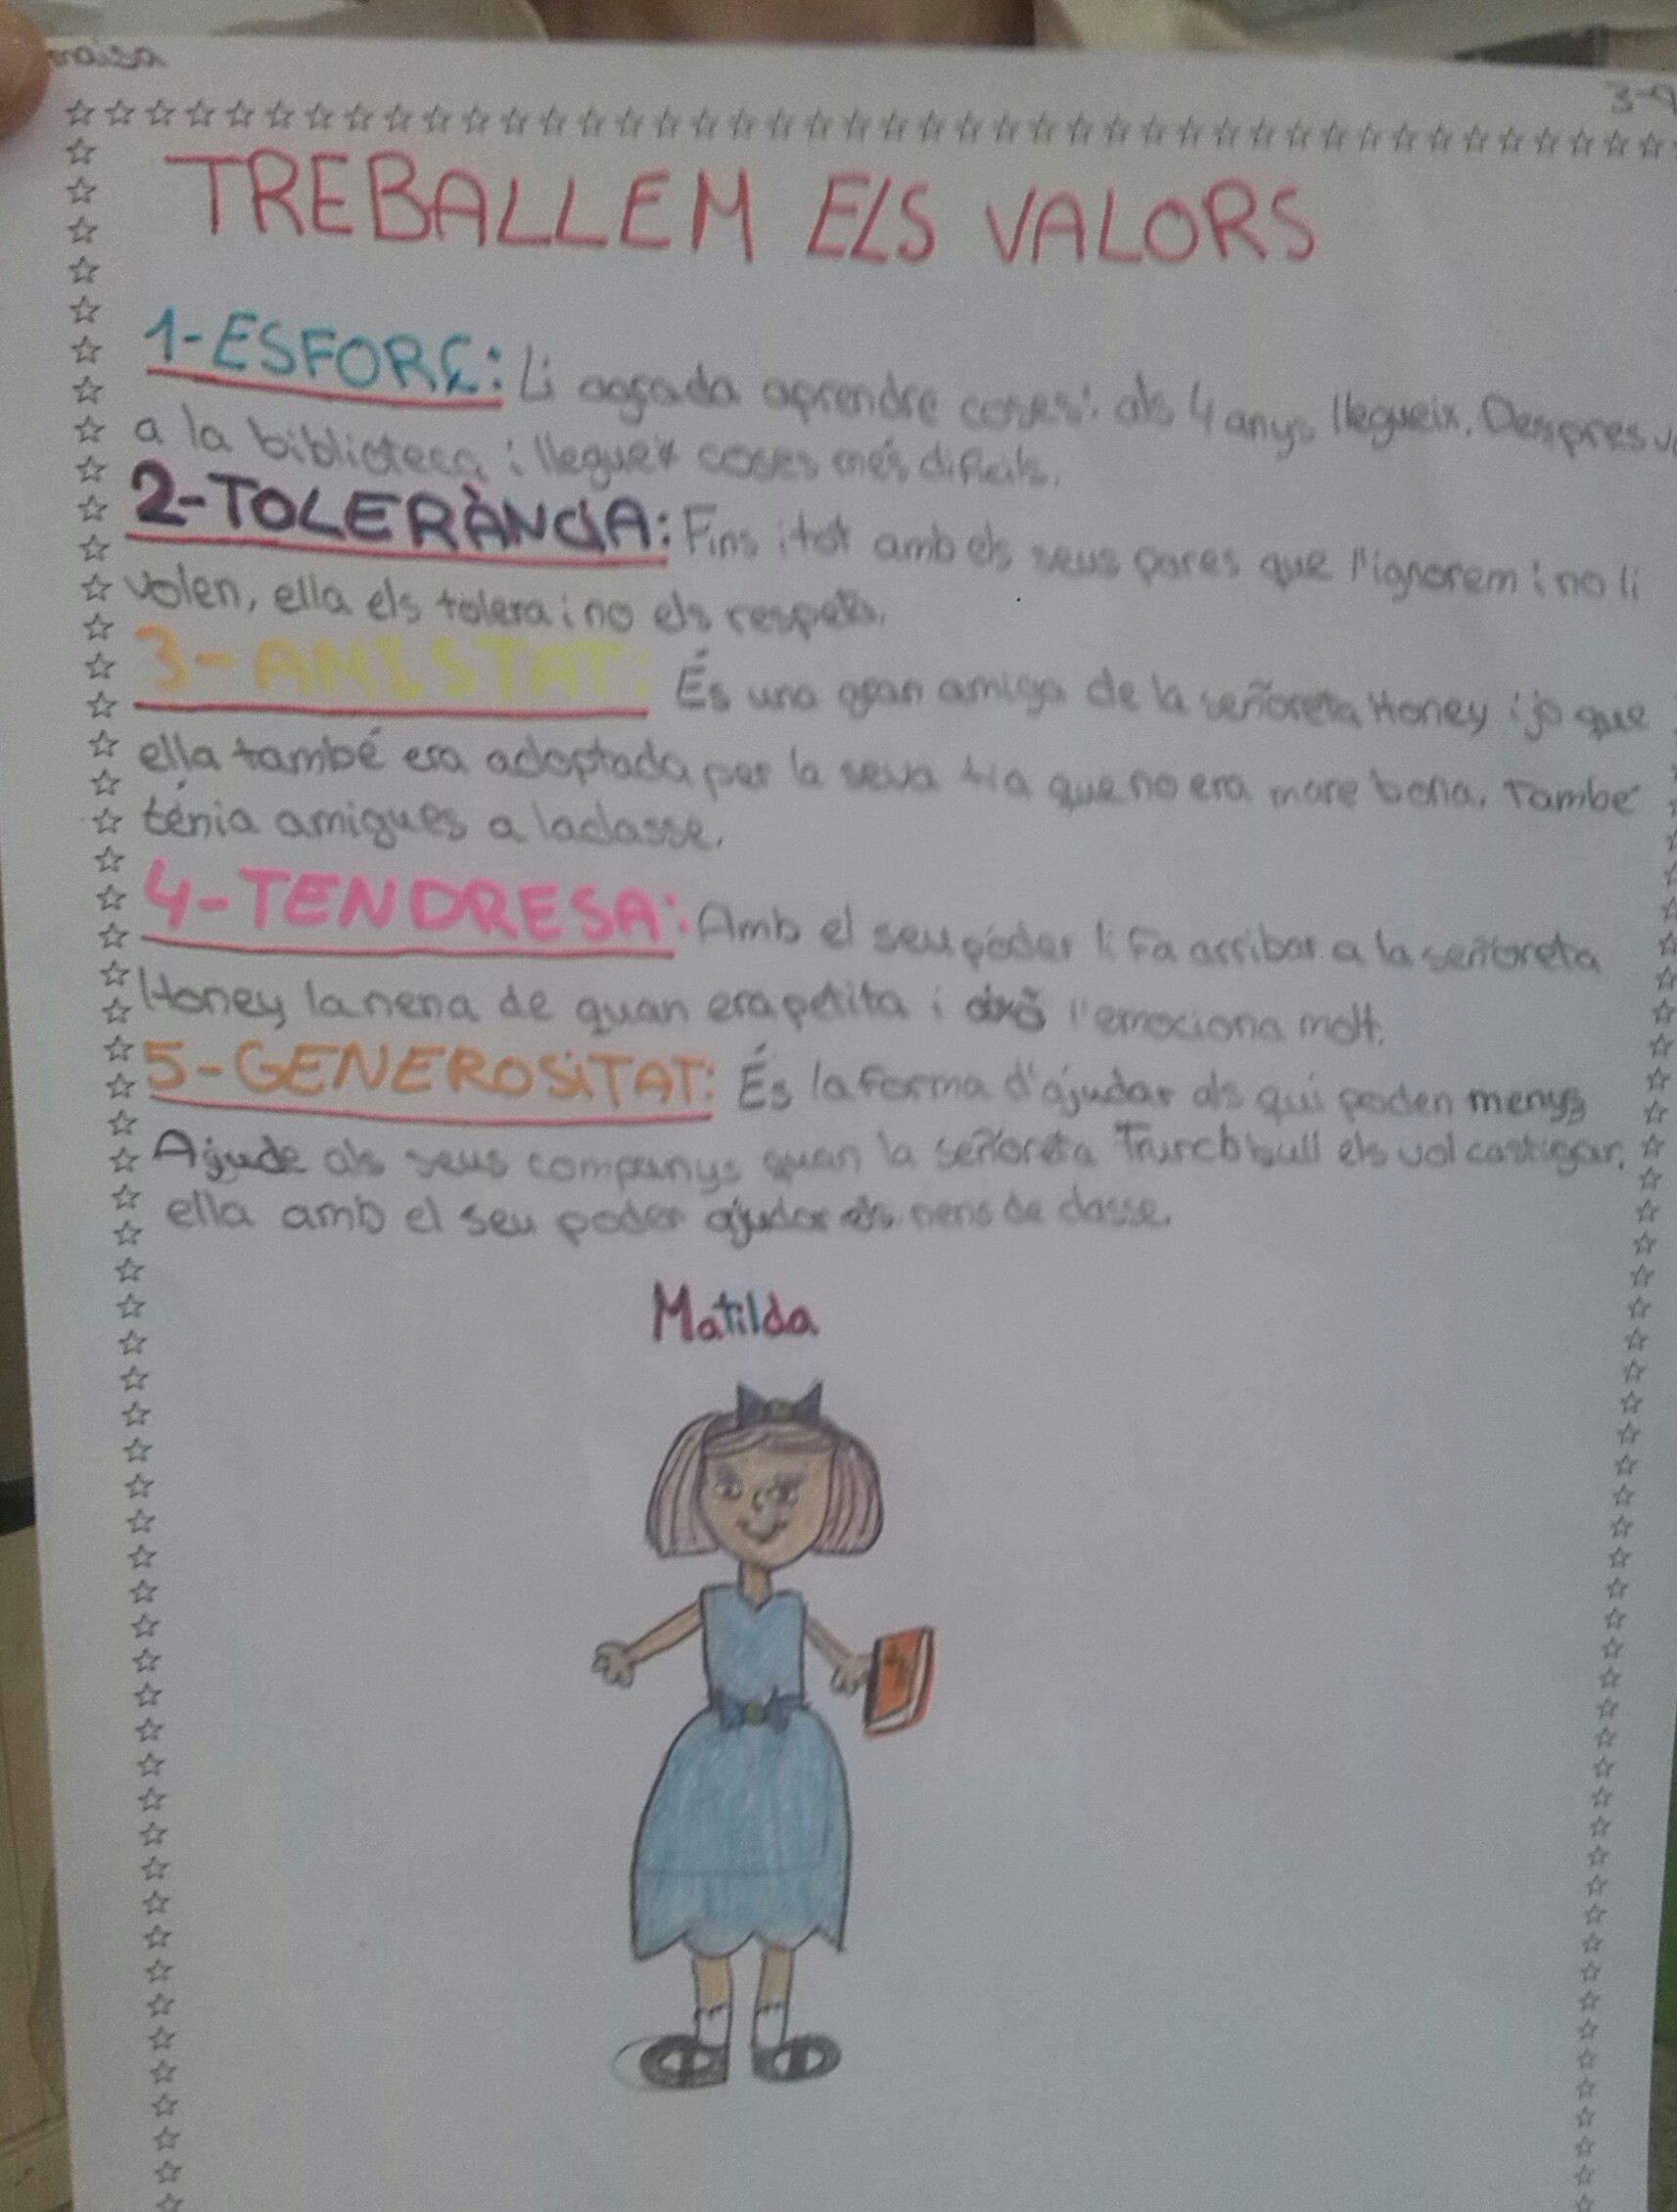 naisa
TREBALLEM ELS VALORS
1-ESFORÇ: Li agrada aprendre coses: als 4 anys llegueix. Despres
a la biblioteca i llegueix coses més dificils.
2-TOLERÀNCIA: Fins itot amb els seus pares que l'ignorem i no li
volen, ella els tolera i no els respeta.
3-AMISTAT: És una gran amiga de la señoreta Honey i ja que
ella també era adoptada per la seva tia que no era mare bona. També
ténia amigues a laclasse.
4-TENDRESA: Amb el seu poder li fa arribar a la señoreta
Honey la nena de quan era petita i això l'emociona molt.
5-GENEROSITAT: És la forma d'ajudar als qui poden menys
Ajude als seus companys quan la señoreta Trurchbull els vol castigar,
ella amb el seu poder ajudar els nens de classe.
Matilda